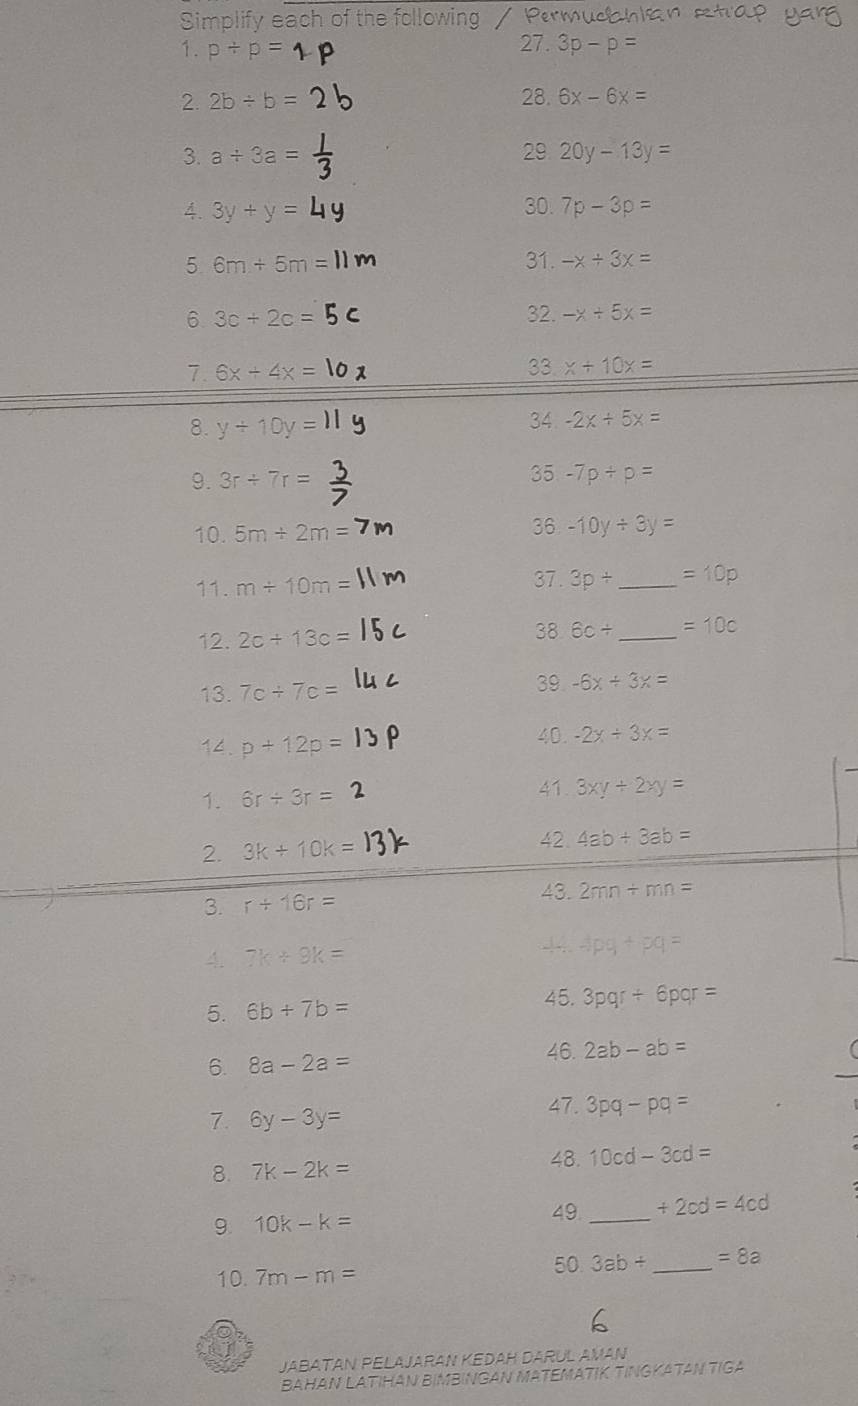 Simplify each of the following / Permudahkan setiap yang
1. p ÷ p = 2p
2. 2b ÷ b = 2b
3. a ÷ 3a = 1/3
4. 3y + y = 4y
5. 6m + 5m = 11m
6. 3c + 2c = 5c
7. 6x + 4x = 10x
8. y + 10y = 11y
9. 3r ÷ 7r = 3/7
10. 5m + 2m = 7m
11. m + 10m = 11m
12. 2c + 13c = 15c
13. 7c + 7c = 14c
14. p + 12p = 13p
1. 6r ÷ 3r = 2
2. 3k + 10k = 13k
3. r + 16r =
4. 7k + 9k =
5. 6b + 7b =
6. 8a - 2a =
7. 6y - 3y=
8. 7k - 2k =
9. 10k - k =
10. 7m - m =
27. 3p - p =
28. 6x - 6x =
29. 20y - 13y =
30. 7p - 3p =
31. -x + 3x =
32. -x + 5x =
33. x + 10x =
34. -2x + 5x =
35. -7p + p =
36. -10y + 3y =
37. 3p + _____ = 10p
38. 6c + _____ = 10c
39. -6x + 3x =
40. -2x + 3x =
41. 3xy + 2xy =
42. 4ab + 3ab =
43. 2mn + mn =
44. 4pq + pq =
45. 3pqr + 6pqr =
46. 2ab - ab =
47. 3pq - pq =
48. 10cd - 3cd =
49. _____ + 2cd = 4cd
50. 3ab ÷ _____ = 8a
6
JABATAN PELAJARAN KEDAH DARUL AMAN
BAHAN LATIHAN BIMBINGAN MATEMATIK TINGKATAN TIGA